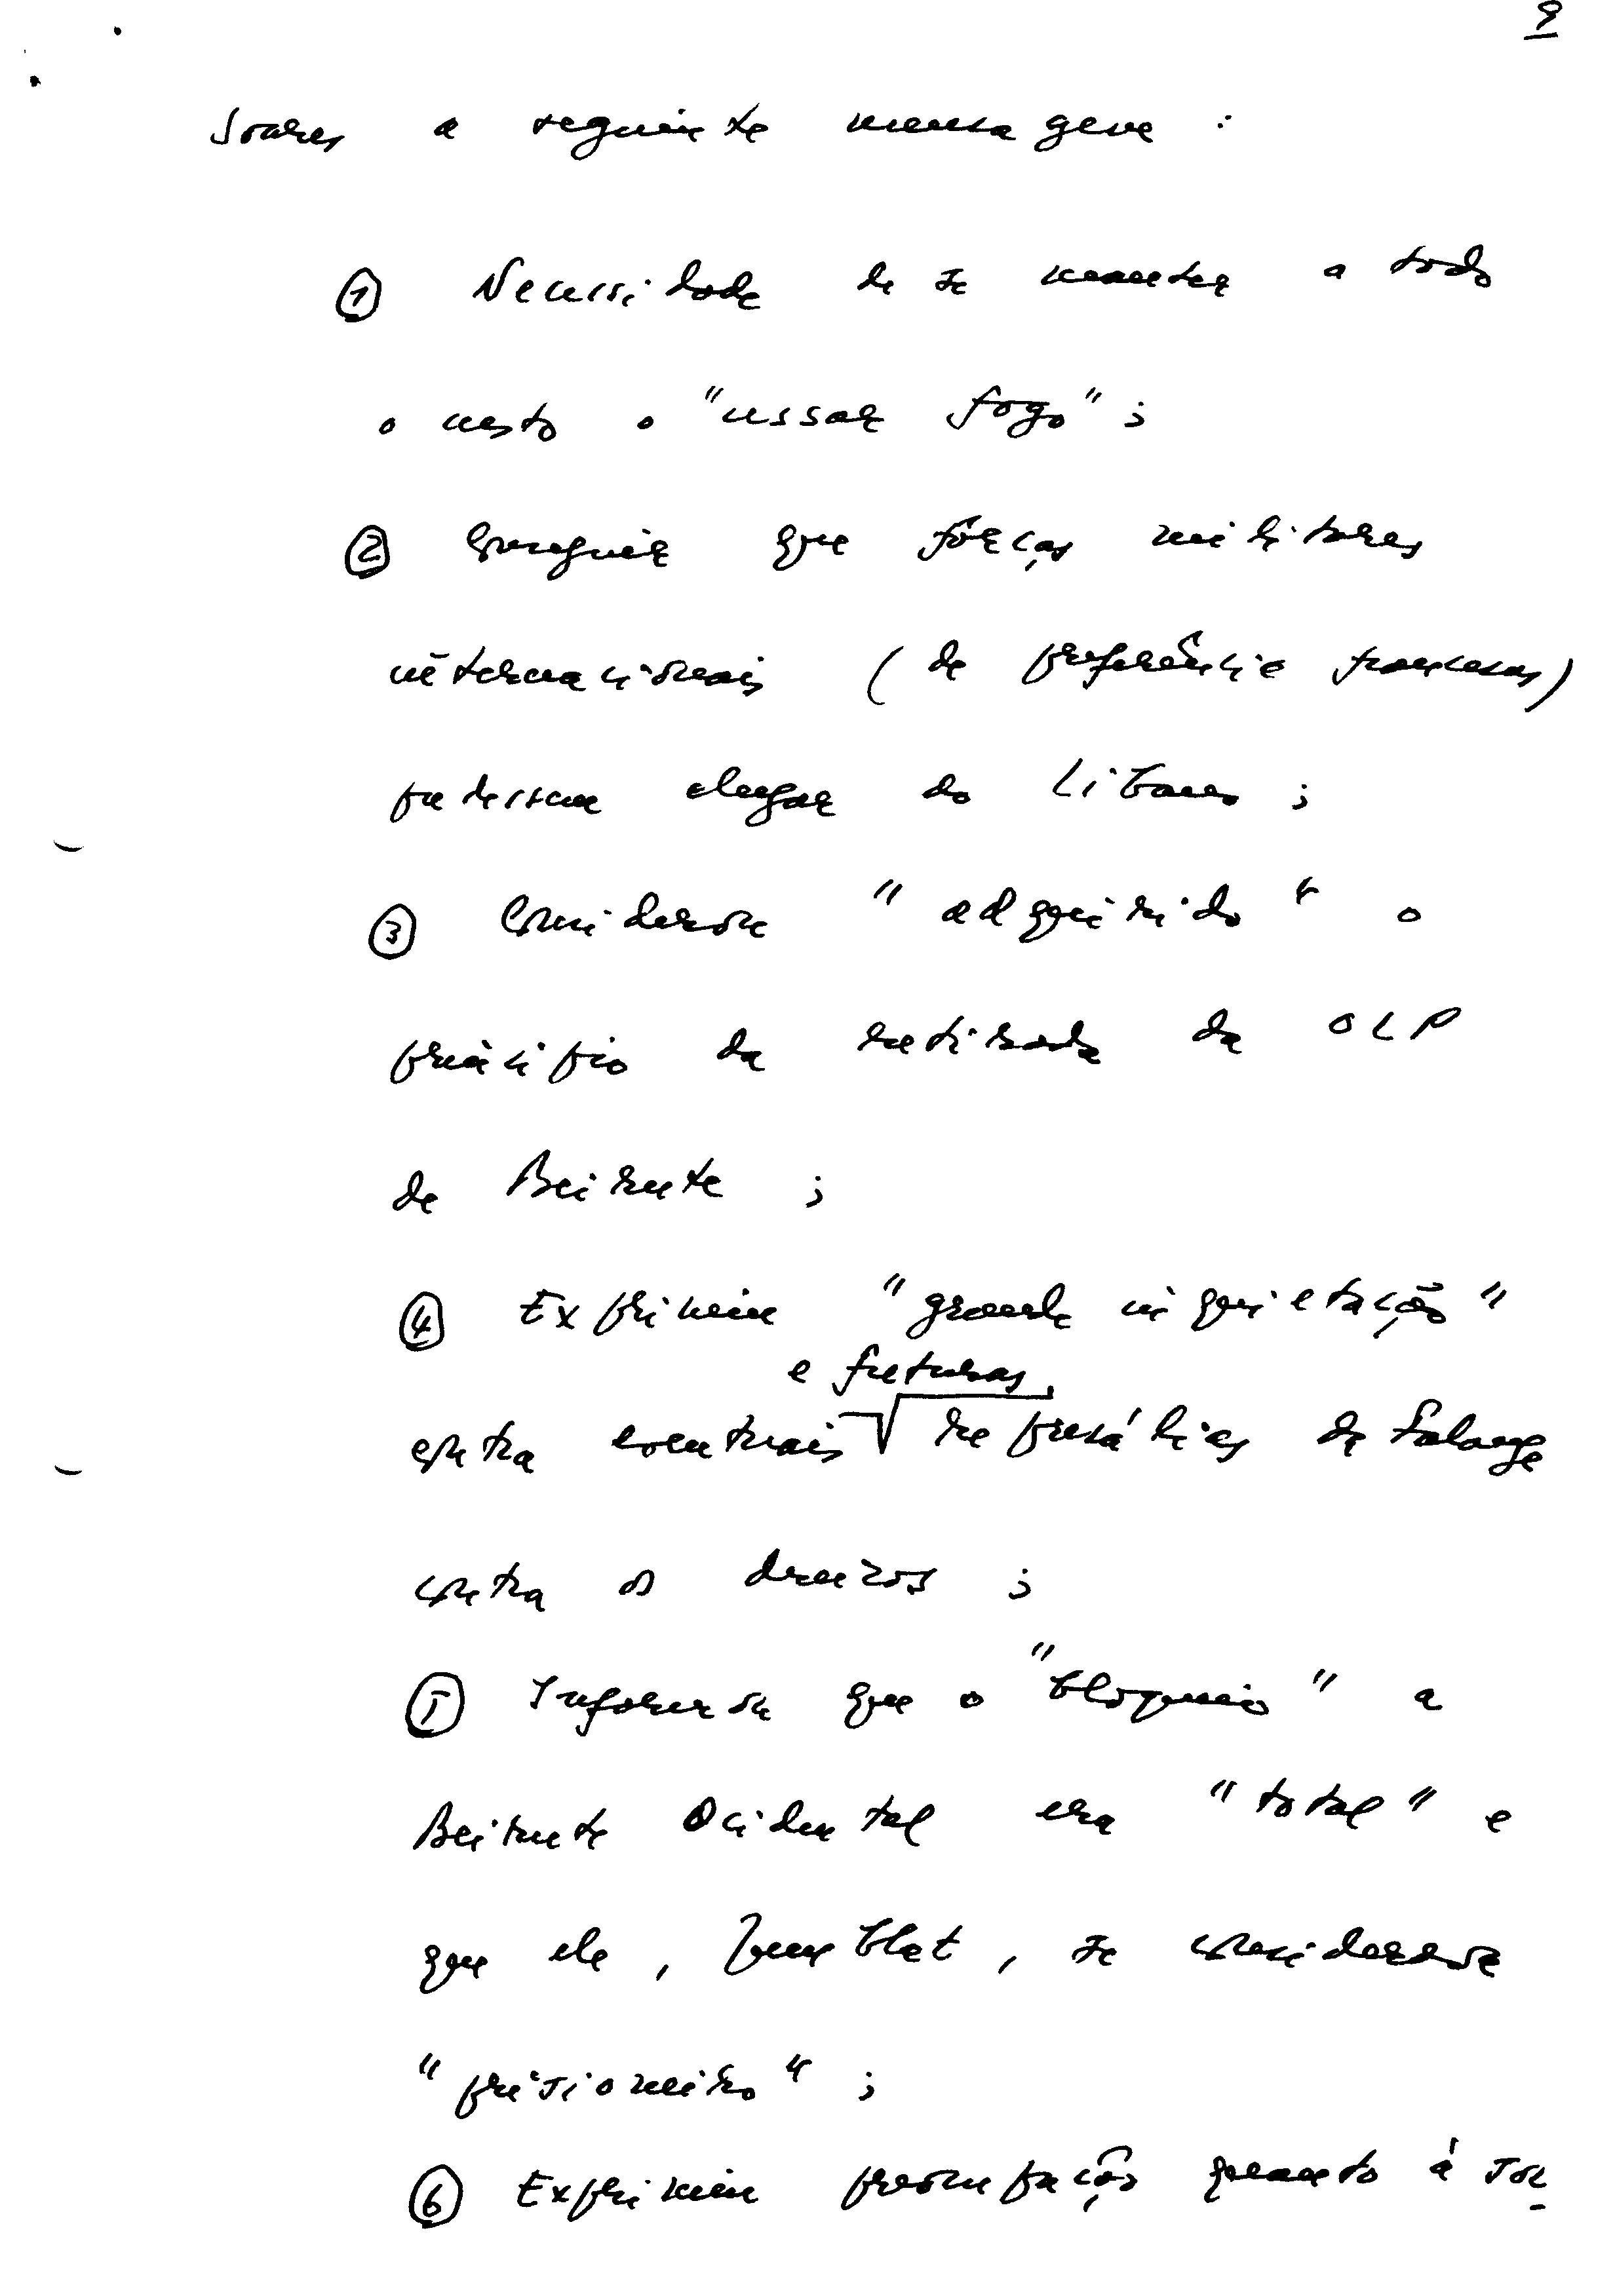 9
Soares a seguinte mensagem :
① Necessidade de se manter a todo
o custo o "cessar fogo" ;
② Conseguir que fôrças militares
internacionais (de preferência francesas)
pudessem chegar ao Líbano ;
③ Considerou "adquirido" o
princípio da retirada da OLP
de Beirute ;
④ Exprimiu "grande inquietação"
e futuras
contra eventuais represálias da Falange
contra os druzos ;
⑤ Informou que o "bloqueio" a
Beirute Ocidental era "total" e
que ele, Jumblat, se considerava
"prisioneiro" ;
⑥ Exprimiu preocupação quanto à sor-